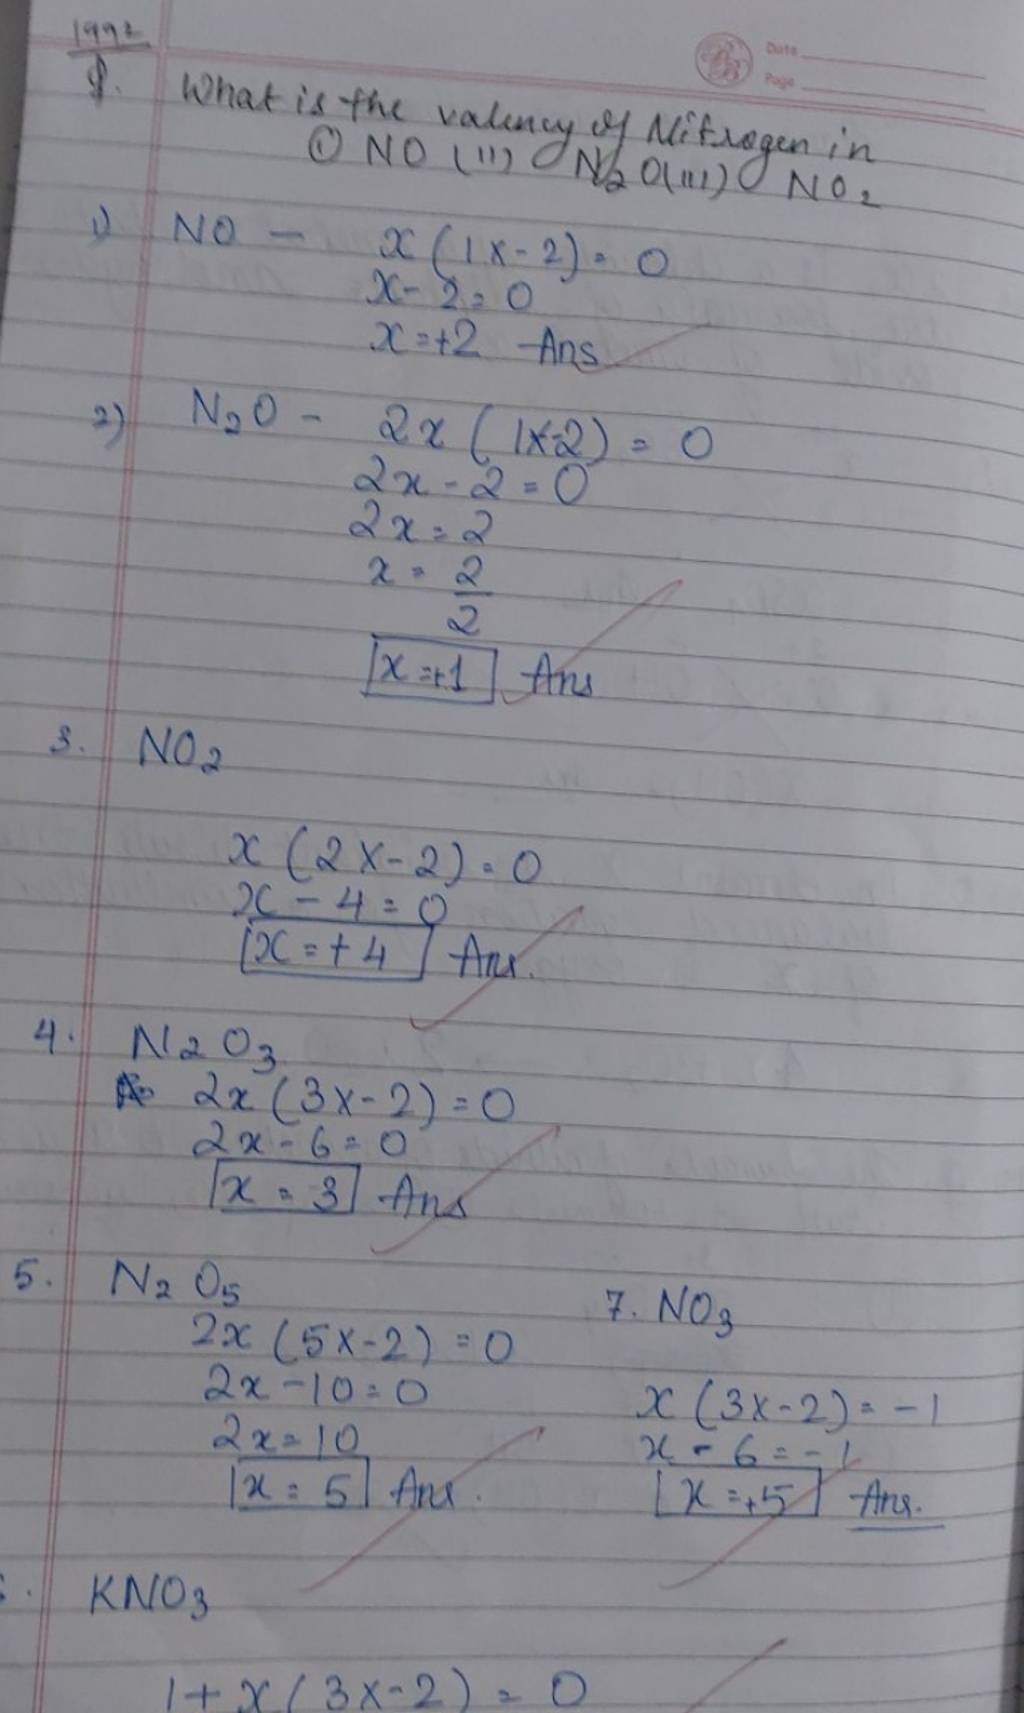 1992
Date
Page
Q. What is the valency of Nitrogen in
① NO (II) N₂O (III) NO₂
1) NO - x (1x-2) = 0
x - 2 = 0
x = +2 Ans
2) N₂O - 2x (1x-2) = 0
2x - 2 = 0
2x = 2
x = 2/2
x = +1 Ans
3. NO₂
x (2x-2) = 0
x - 4 = 0
x = +4 Ans.
4. N₂O₃
2x (3x-2) = 0
2x - 6 = 0
x = 3 Ans
5. N₂O₅
2x (5x-2) = 0
2x - 10 = 0
2x = 10
x = 5 Ans.
7. NO₃
x (3x-2) = -1
x - 6 = -1
x = +5 Ans.
KNO₃
1 + x (3x-2) = 0